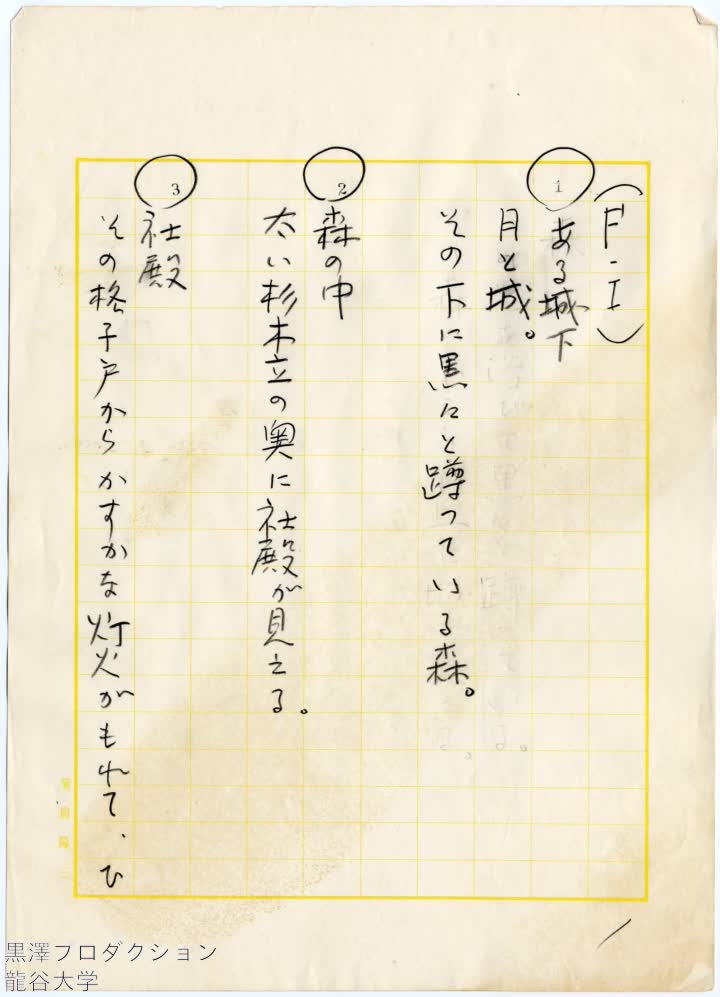 (F-I)
1
ある城下
月と城。
その下に黒々と蹲っている森。
2
森の中
太い杉木立の奥に社殿が見える。
3
社殿
その格子戸からかすかな灯火がもれて、ひ
黒澤プロダクション
龍谷大学